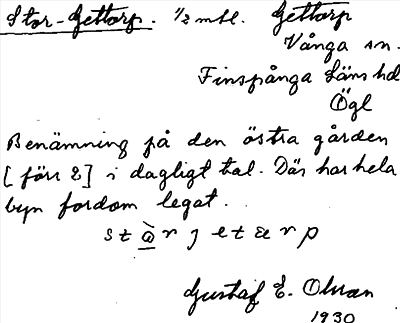 Stor-Gettorp. 1/2 mtl. Gettorp
Vånga sn.
Finspånga Läns hd
Ögl
Benämning på den östra gården
[förr 2] i dagligt tal. Där har hela
byn fordom legat.
stɷ̀rjetærp
Gustaf E. Olsson
1930